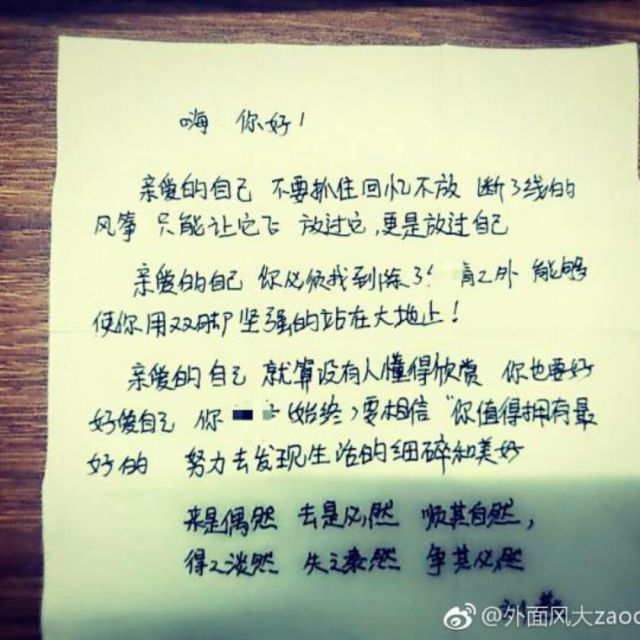 嗨 你好！
亲爱的自己 不要抓住回忆不放 断了线的
风筝 只能让它飞 放过它，更是放过自己
亲爱的自己 你必须找到除了 之外 能够
使你用双脚坚强的站在大地上！
亲爱的自己 就算没有人懂得欣赏 你也要好
好爱自己 你 （始终）要相信 你值得拥有最
好的 努力去发现生活的细碎和美好
来是偶然 去是必然 顺其自然，
得之淡然 失之泰然 争其必然
@外面风大zao